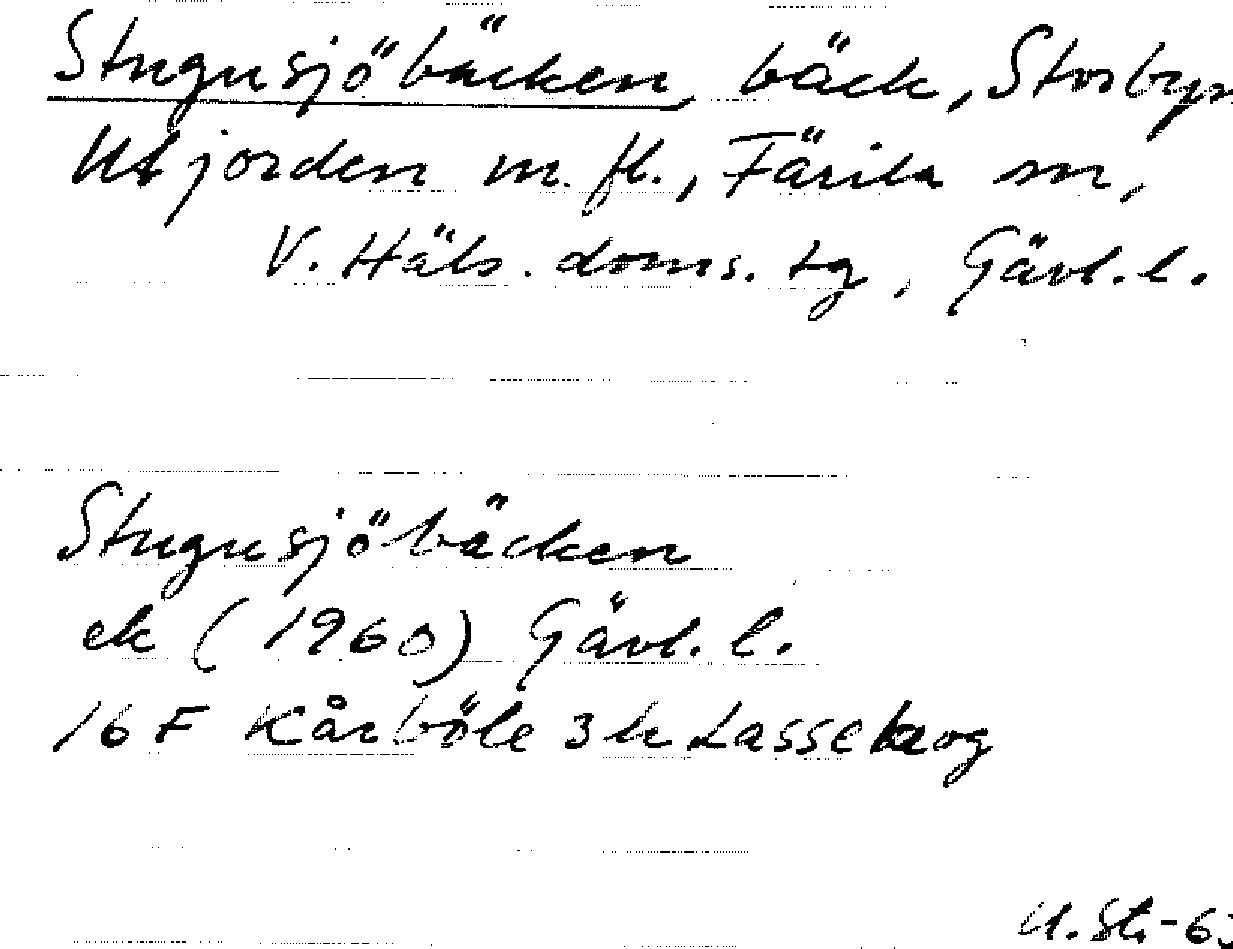 Stugusjöbäcken, bäck, Storbyn
Utjorden m. fl., Färila sn,
V. Häls. doms. tg, Gävl. l.
Stugusjöbäcken
ek (1960) Gävl. l.
16 F Kårböle 3h Lasseberg
U. St. -63